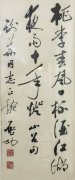 桃李春風一杯酒江湖
夜雨十年燈 山谷句
同志正 啟功